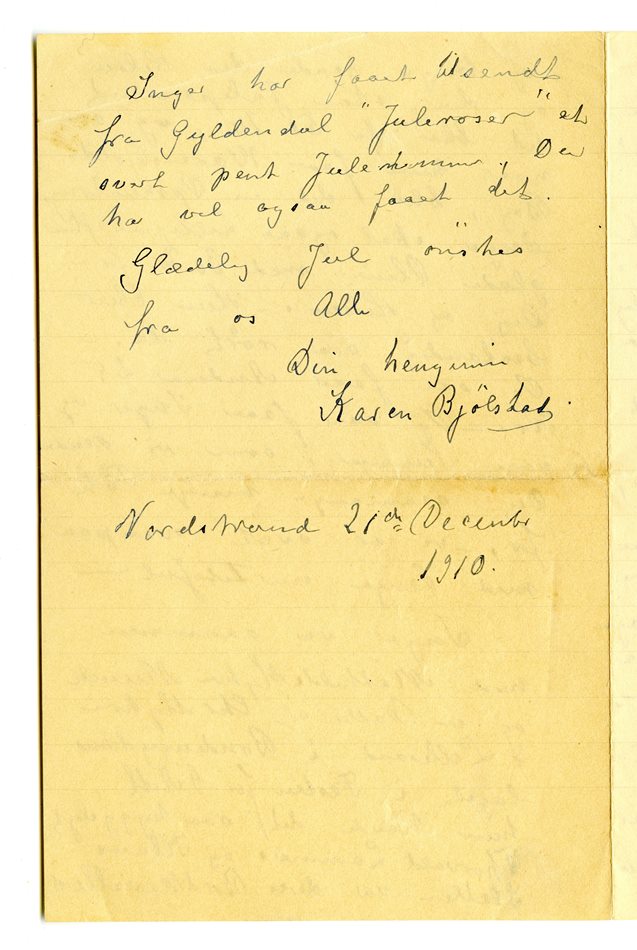 Inger har faaet tilsendt
fra Gyldendal "Juleroser" et
svært pent Julenummer, De
har vel ogsaa faaet det.
Glædelig Jul önskes
fra os Alle
Din hengivne
Karen Bjölstad.
Nordstrand 21de Decembr
1910.